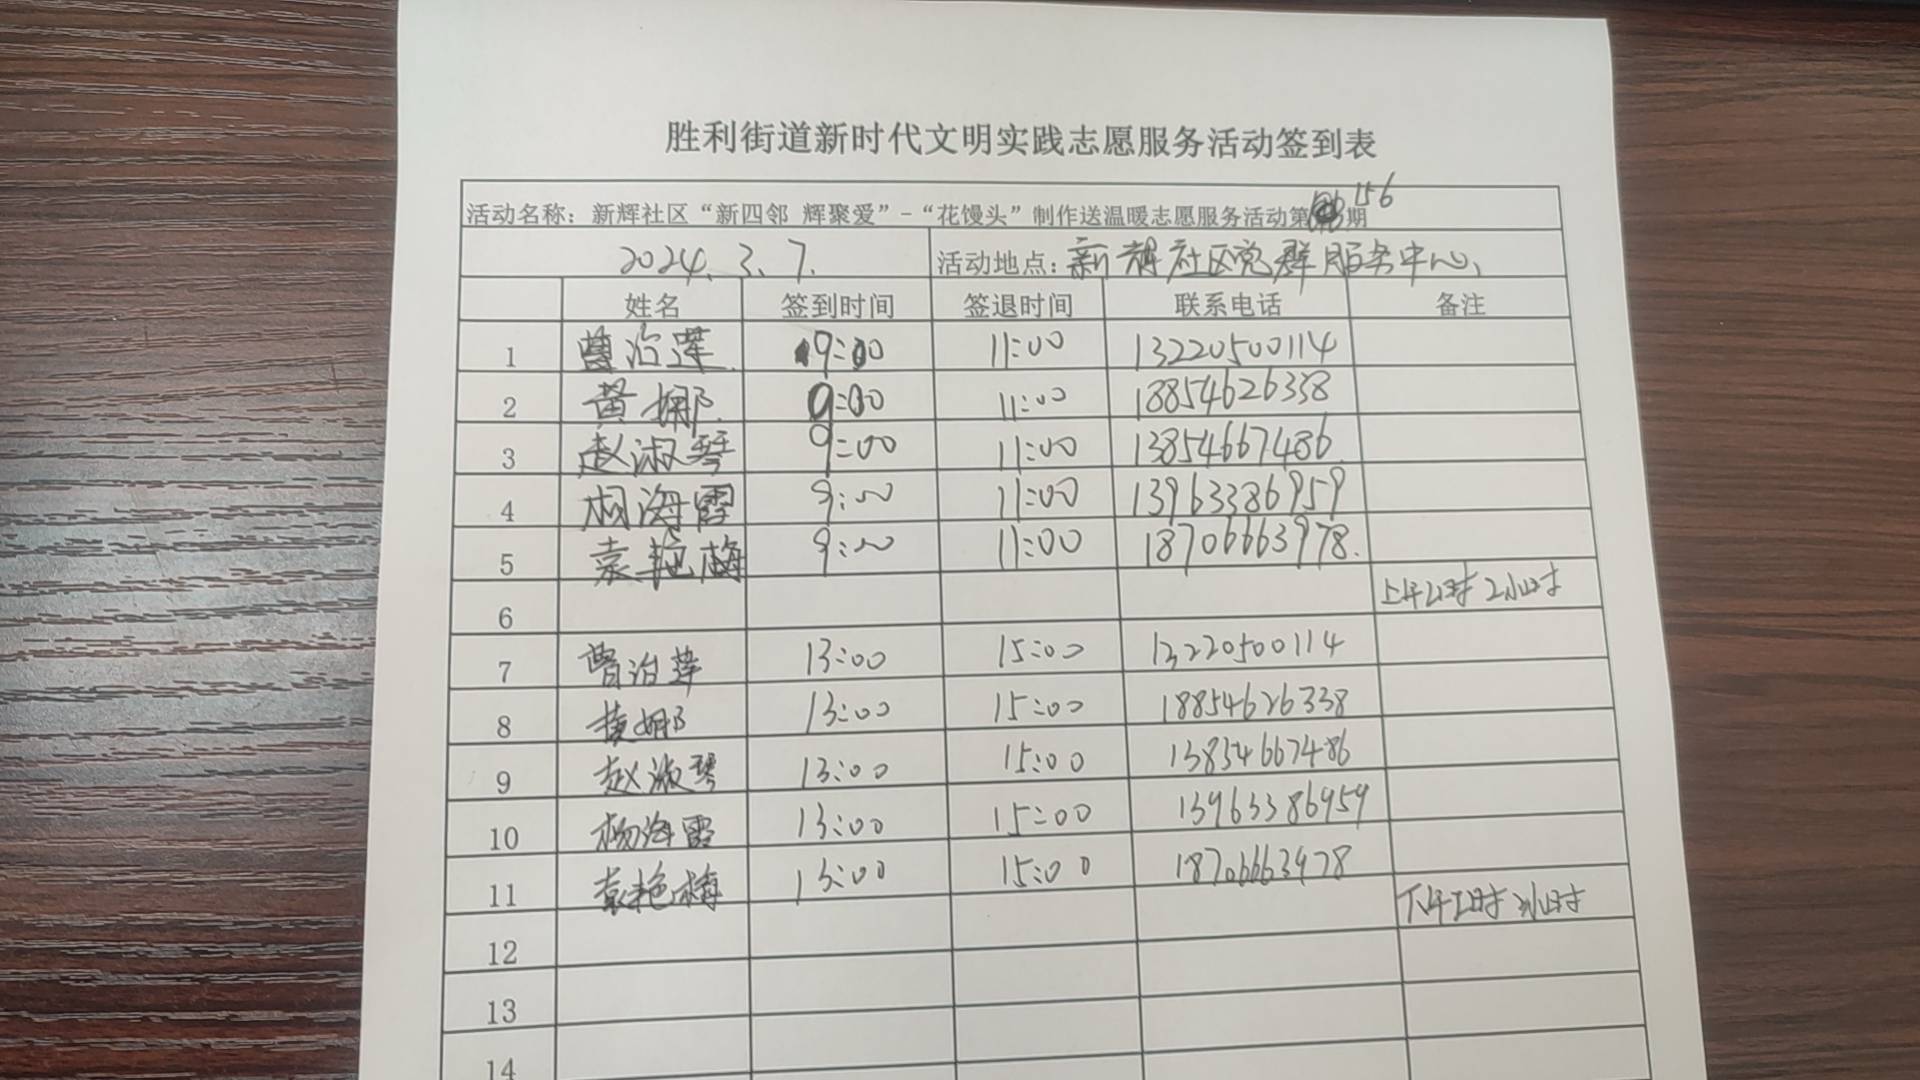 胜利街道新时代文明实践志愿服务活动签到表
活动名称：新辉社区“新四邻 辉聚爱”-“花馒头”制作送温暖志愿服务活动第156期
2024.3.7. 活动地点：新辉社区党群服务中心
姓名 签到时间 签退时间 联系电话 备注
1 曹治莲 9:00 11:00 13220500114
2 黄娜 9:00 11:00 18854626338
3 赵淑琴 9:00 11:00 13854667486
4 杨海霞 9:00 11:00 13963386959
5 袁艳梅 9:00 11:00 18706663978.
6 上午工时2小时
7 曹治莲 13:00 15:00 13220500114
8 黄娜 13:00 15:00 18854626338
9 赵淑琴 13:00 15:00 13854667486
10 杨海霞 13:00 15:00 13963386959
11 袁艳梅 13:00 15:00 18706663978
12 下午工时2小时
13
14